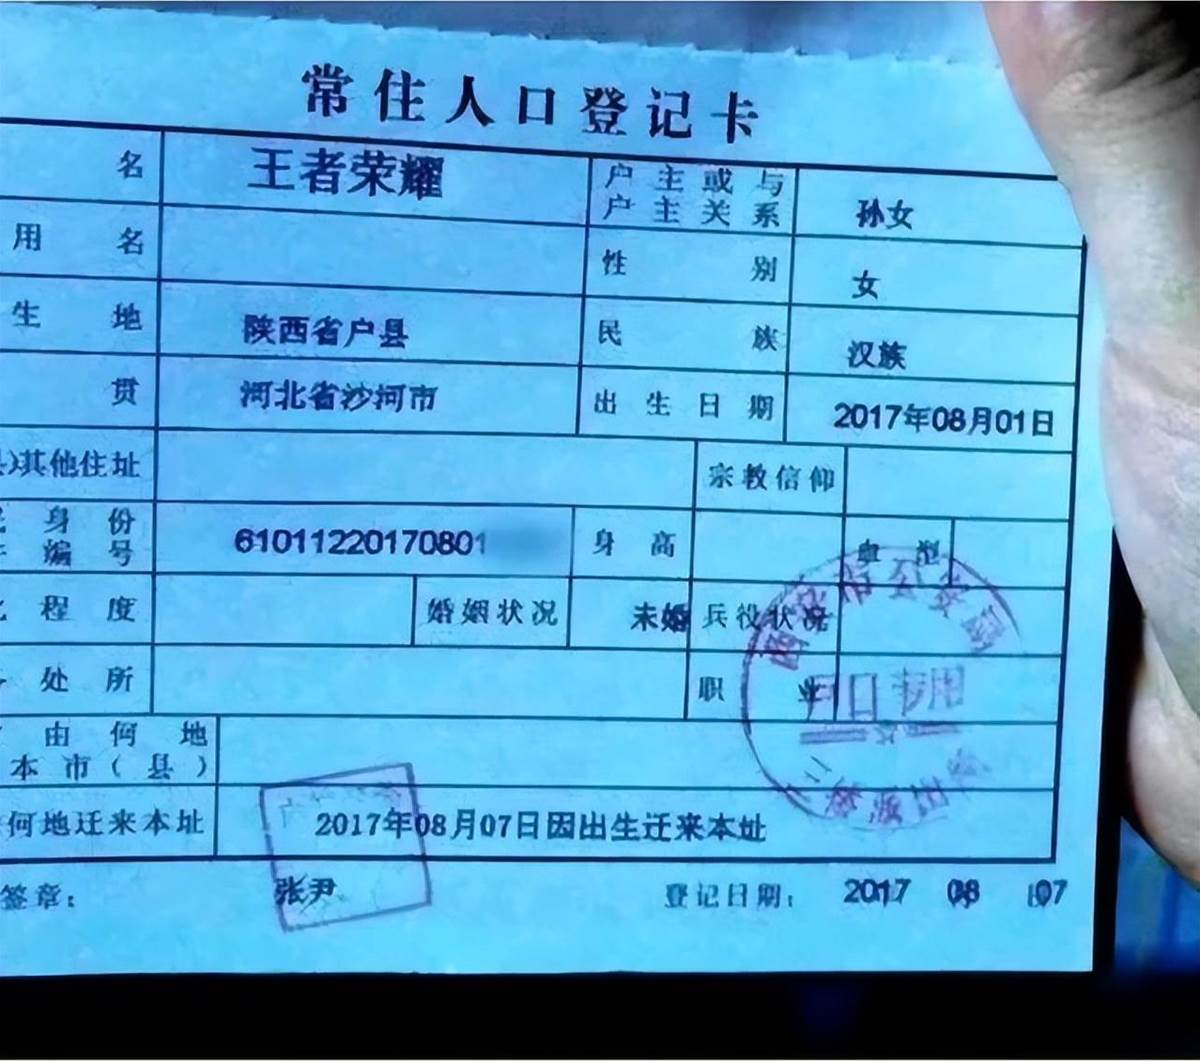 常住人口登记卡
名 王者荣耀 户主或与
户主关系 孙女
用名 性别 女
生地 陕西省户县 民族 汉族
贯 河北省沙河市 出生日期 2017年08月01日
)其他住址 宗教信仰
身份
编号 61011220170801 身高 血型
程度 婚姻状况 未婚 兵役状况
处所 职业
由何地
本市(县)
何地迁来本址 2017年08月07日因出生迁来本址
签章: 张尹 登记日期: 2017 08 07
市公安局
户口专用